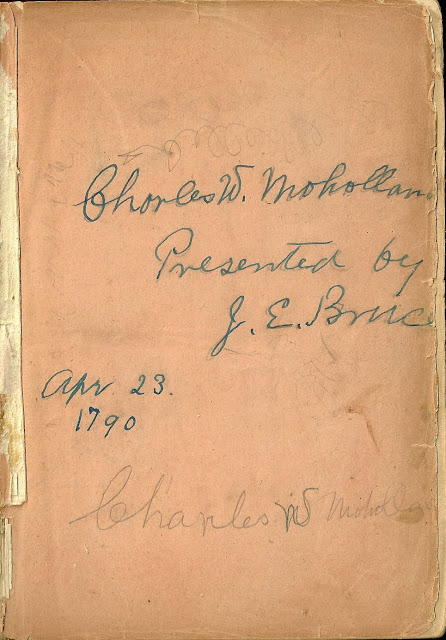 Charles W. Mohollan
Presented by
J. E. Bruce
Apr 23.
1790
Charles W Moholla